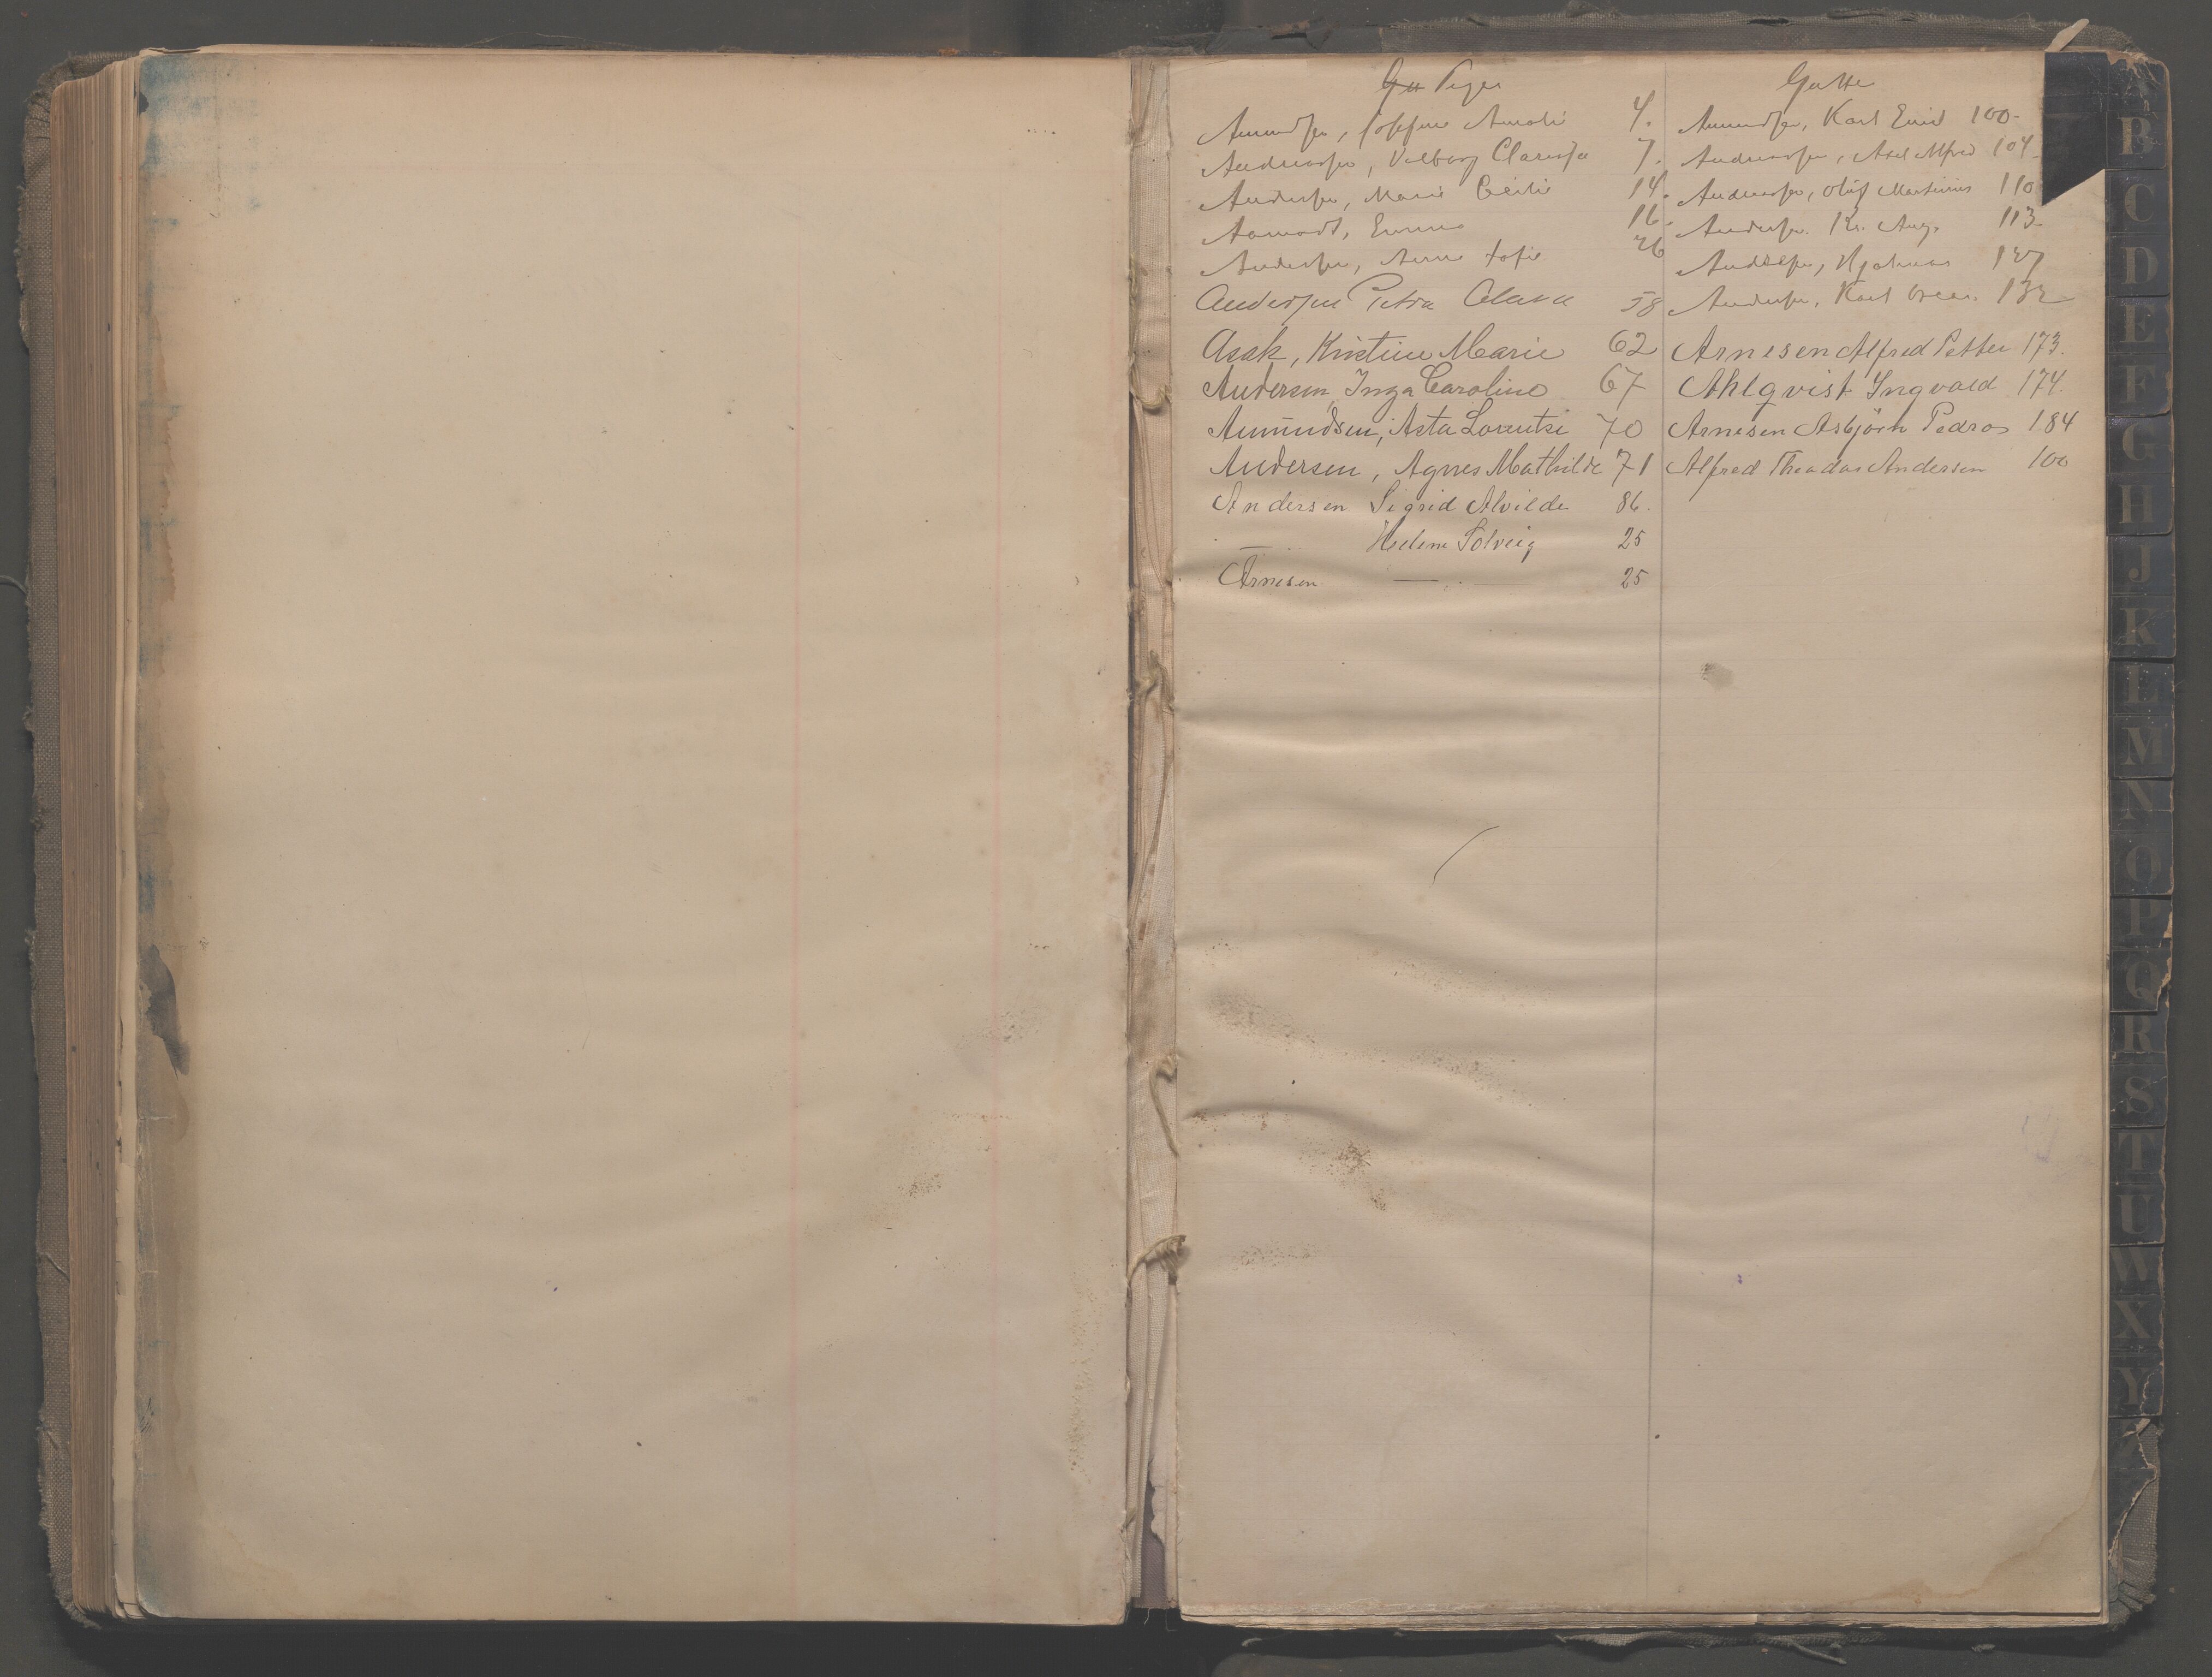 Gu Piger
Amundsen, Josefine Amalie 4.
Andreassen, Valborg Clarissa 7.
Andersen, Marie Cecilie 14.
Aamodt, Emma 16.
Andersen, Anna Sofie 26
Andersen Petra Olava 58
Asak, Kristine Marie 62
Andersen, Inga Caroline 67
Amundsen, Asta Lorentse 70
Andersen, Agnes Mathilde 71
Andersen Sigrid Alvilde 86.
— Helene Solveig 25
Arnesen — . — 25
Gutte
Amundsen, Karl Emil 100.
Andreassen, Axel Alfred 104.
Andreassen, Oluf Martinius 110
Andersen. Kr. Aug. 113
Andersen, Hjalmar 127
Andersen, Karl Oscar. 132
Arnesen Alfred Petter 173.
Ahlqvist Yngvald 174.
Arnesen Asbjörn Pedros 184
Alfred Theodor Andersen 100
A
B
C
D
E
F
G
H
J
K
L
M
N
O
P
Q
R
S
T
U
W
X
Y
Z